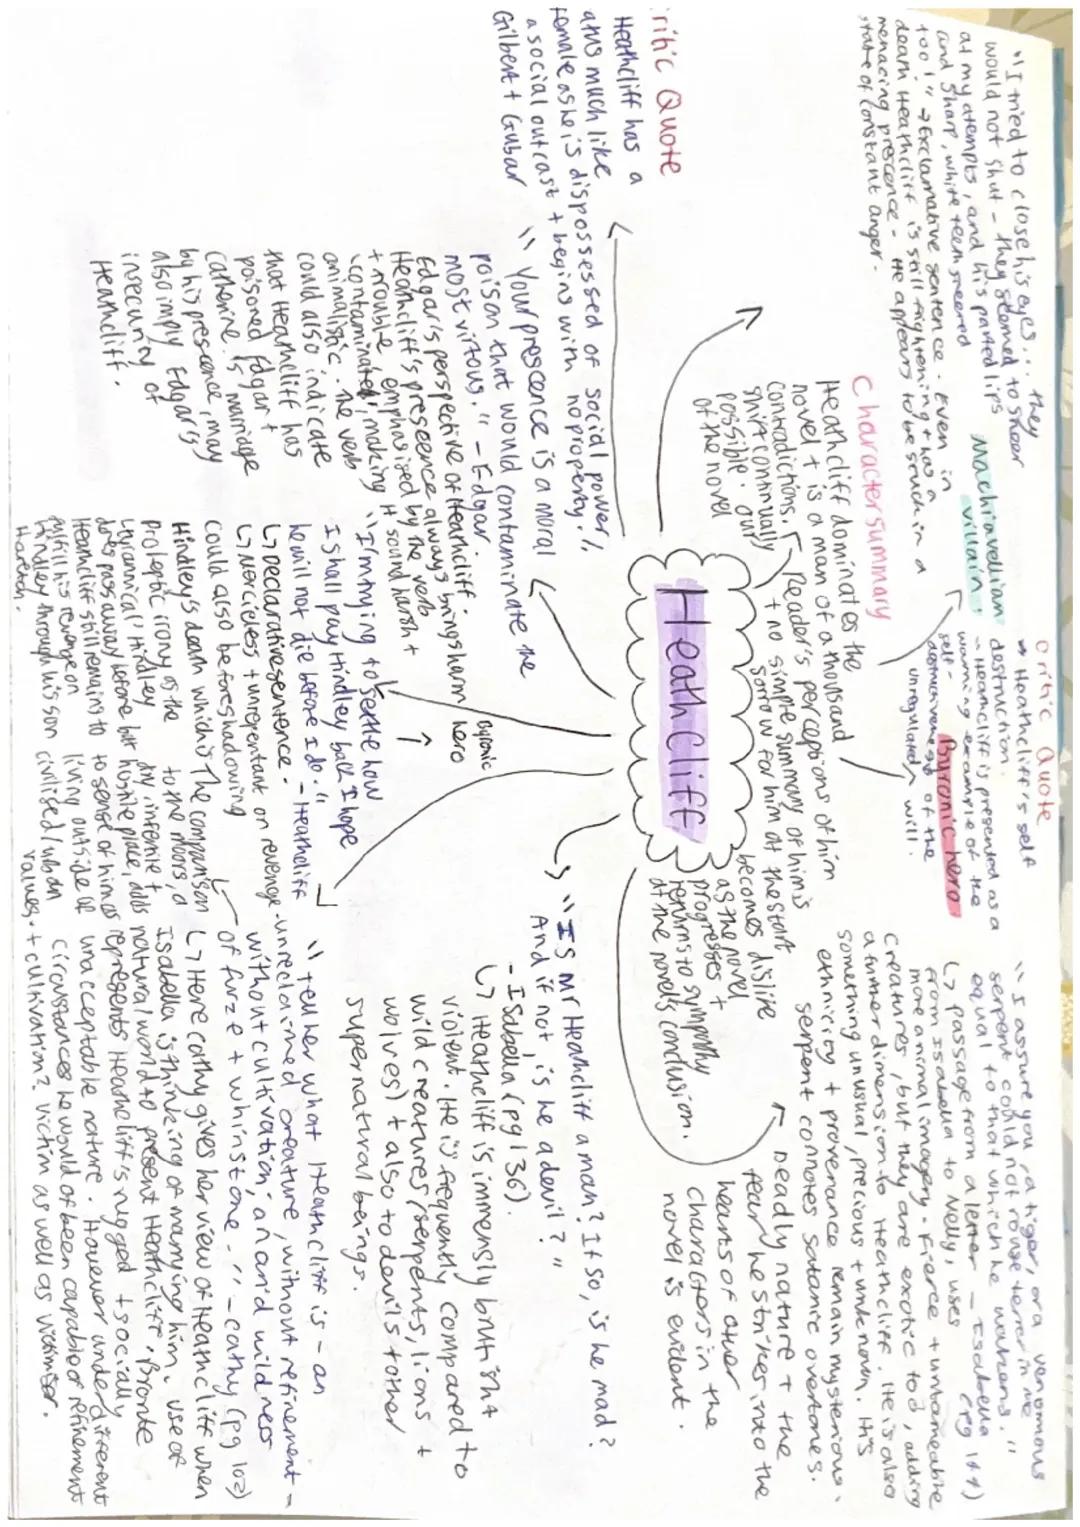 "I tried to close his eyes... they
would not shut - they seemed to sneer
at my attempts, and his parted lips
and sharp, white teeth sneered
too!" → Exclamative sentence. Even in
death Heathcliff is still frightening + has a
menacing prescence - He appears to be stuck in a
state of constant anger.
Machiavellian
villain.
Critic Quote
→ Heathcliff's self
destruction.
- Heathcliff is presented as a
warning example of the
self-
destructiveness of the
unregulated will.
Byronic hero
"I assure you, a tiger, or a venomous
serpent could not rouse terror in me
equal to that which he wakens."
- Isabella (pg 144)
↳ passage from a letter
from Isabella to Nelly, uses
more animal imagery. Fierce + untameable
creatures, but they are exotic too, adding
a further dimension to Heathcliff. He is also
something unusual, precious + unknown. His
ethnicity + provenance remain mysterious.
serpent connotes satanic overtones.
Deadly nature + the
fear he strikes into the
hearts of other
characters in the
novel is evident.
Character summary
Heathcliff dominates the
novel + is a man of a thousand
contradictions. Reader's perceptions of him
shift continually + no simple summary of him is
possible. our sorrow for him at the start
of the novel becomes dislike
as the novel
progresses +
returns to sympathy
at the novels conclusion.
Heathcliff
ritic Quote
Heathcliff has a
atus much like
female as he is dispossessed of social power,
a social outcast + begins with no property.
Gilbert + Gubar
"Your prescence is a moral
poison that would contaminate the
most virtous." - Edgar.
Edgar's perspective of Heathcliff.
Heathcliff's presence always brings harm
+ trouble, emphasised by the verb
'contaminated', making it sound harsh +
animalistic. The verb
could also indicate
that Heathcliff has
poisoned Edgar +
Catherine's marriage
by his prescence, may
also imply Edgar's
insecurity of
Heathcliff.
byronic
hero
"I'm trying to settle how
I shall pay Hindley back. I hope
he will not die before I do." - Heathcliff
↳ Declarative sentence.
↳ Merciless + unrepentant on revenge.
Could also be foreshadowing
Hindley's death which is
proleptic irony as the
tyrannical Hindley
does pass away before but
Heathcliff still remains to
fulfill his revenge on
Hindley through his son
Hareton.
"Is Mr Heathcliff a man? If so, is he mad?
And if not, is he a devil?"
- Isabella (pg 136).
↳ Heathcliff is immensely brutish +
violent. He is frequently compared to
wild creatures (serpents, lions +
wolves) + also to devils + other
supernatural beings.
"tell her what Heathcliff is - an
unreclaimed creature, without refinement -
without cultivation; an arid wildness
of furze + whinstone." - Cathy (pg 102)
↳ Here Cathy gives her view of Heathcliff when
Isabella is thinking of marrying him. Use of
natural world to present Heathcliff. Bronte
represents Heathcliff's rugged + socially
unacceptable nature. However under different
circumstances he would of been capable of refinement
+ cultivation? Victim as well as
The comparison
to the moors, a
dry, infertile +
hostile place, adds
to sense of him as
living outside of
civilised/urban
values.